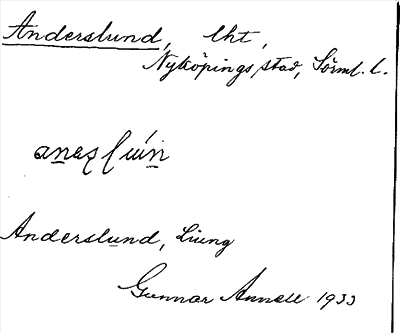 Anderslund, lht,
Nyköpings stad, Sörml. l.
Anderslund, Ljung
Gunnar Annell 1933